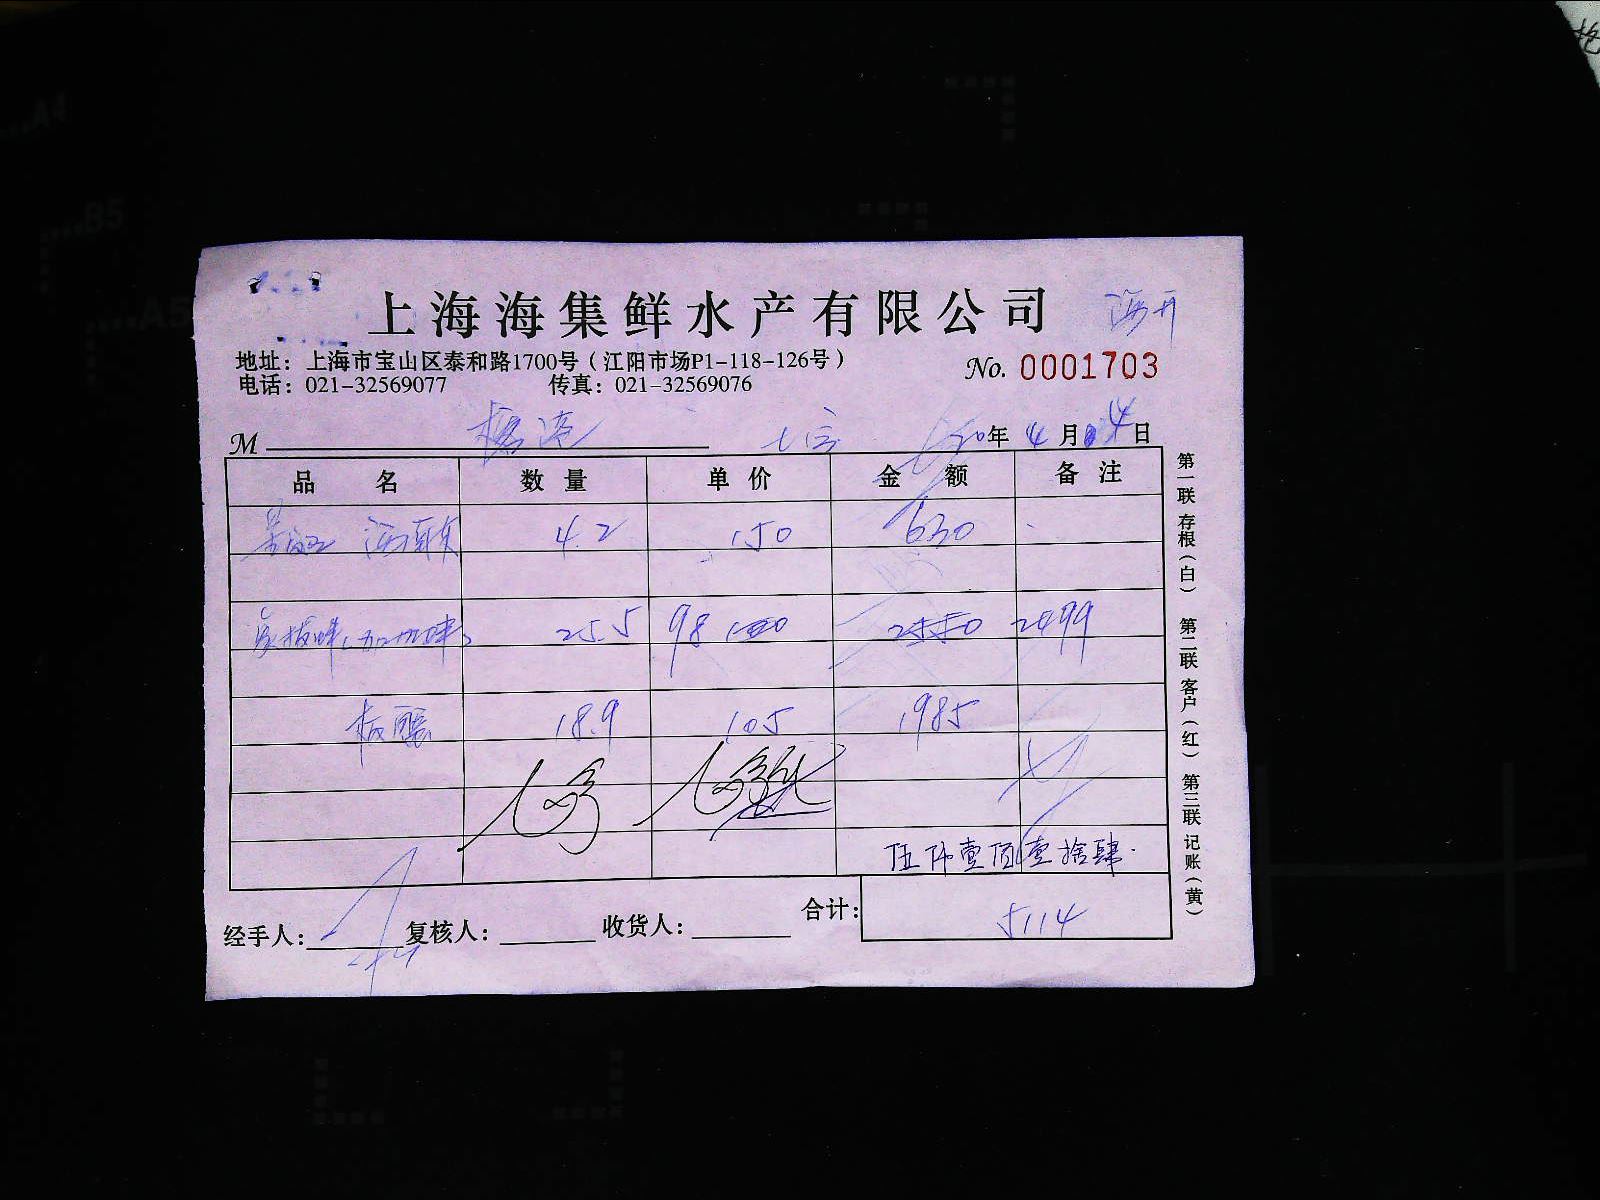 上海海集鲜水产有限公司
地址：上海市宝山区泰和路1700号（江阳市场P1-118-126号）
No. 0001703
电话：021-32569077 传真：021-32569076
M 20年4月4日
品名 数量 单价 金额 备注
4.2 150 630
25.5 98 100 2550 2499
18.9 105 1985
伍仟壹佰壹拾肆
合计： 5114
经手人： 复核人： 收货人：
第一联存根（白） 第二联客户（红） 第三联记账（黄）
A4
B5
A5